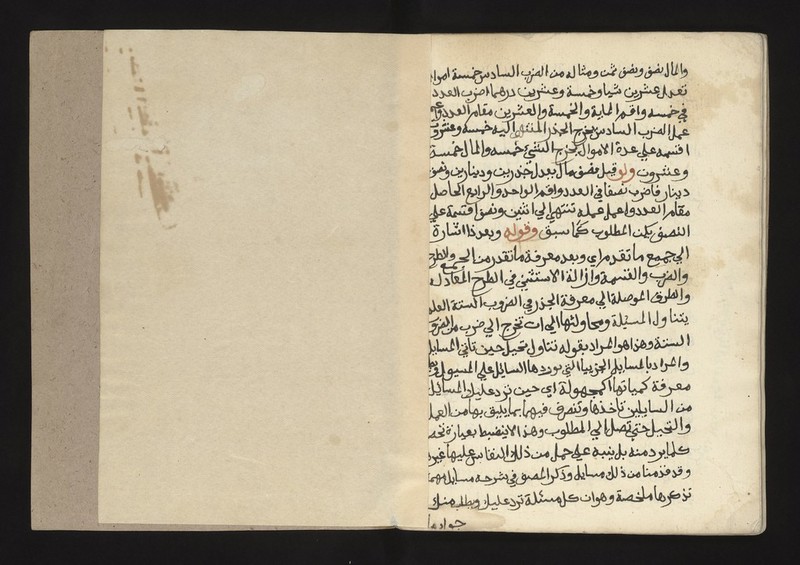 والمال نصف ونصف ثمن ومثاله من الضرب السادس خمسة اموال
تعدل عشرين شيا وخمسة وعشرين درهما اضرب العدد
في خمسه واقم الماية والخمسة والعشرين مقام العدد واعمل
عمل الضرب السادس يخرج الجذر المنتهى اليه خمسه وعشرون
اقسمه علي عدة الاموال يخرج الشيء خمسه والمال خمسة
وعشرون ولو قيل نصف مال يعدل جذرين ودينارين ونصف
دينار فاضرب نصفا في العدد واقم الواحد والربع الحاصل
مقام العدد واعمل عمله تنتهي الي اثنين ونصف اقسمه علي
النصف يكن المطلوب كما سبق وقوله وبعد ذا اشارة
الي جميع ما تقدم اي وبعد معرفة ما تقدم من الجمع والطرح
والضرب والقسمة وازالة الاستثني في الطرح المعادله
والطرق الموصلة الي معرفة الجذر في الضروب الستة
يتناول المسيلة ومحاولتها الي ان تخرج الي ضرب من الضروب
الستة وهذا هو المراد بقوله نتاول تحيل حين تاتي المسايل
والمراد بالمسايل الجزييا التي يوردها السايل علي المسيول
معرفة كمياتها المجهولة اي حين ترد عليك المسايل
من السايلين تأخذها وتتصرف فيها بما يليق بها من العمل
والتحيل حتي تصل الي المطلوب وهذا لا ينضبط بعبارة
كلما يرد منه بل ينبه علي جمل من ذلك النفاس عليها غيره
وقد قدمنا من ذلك مسايل وذكر المصنف في شرحه مسايل مهمة
نذكرها ملخصة وهو ان كل مسئلة ترد عليك ويطلب منك
جوابها